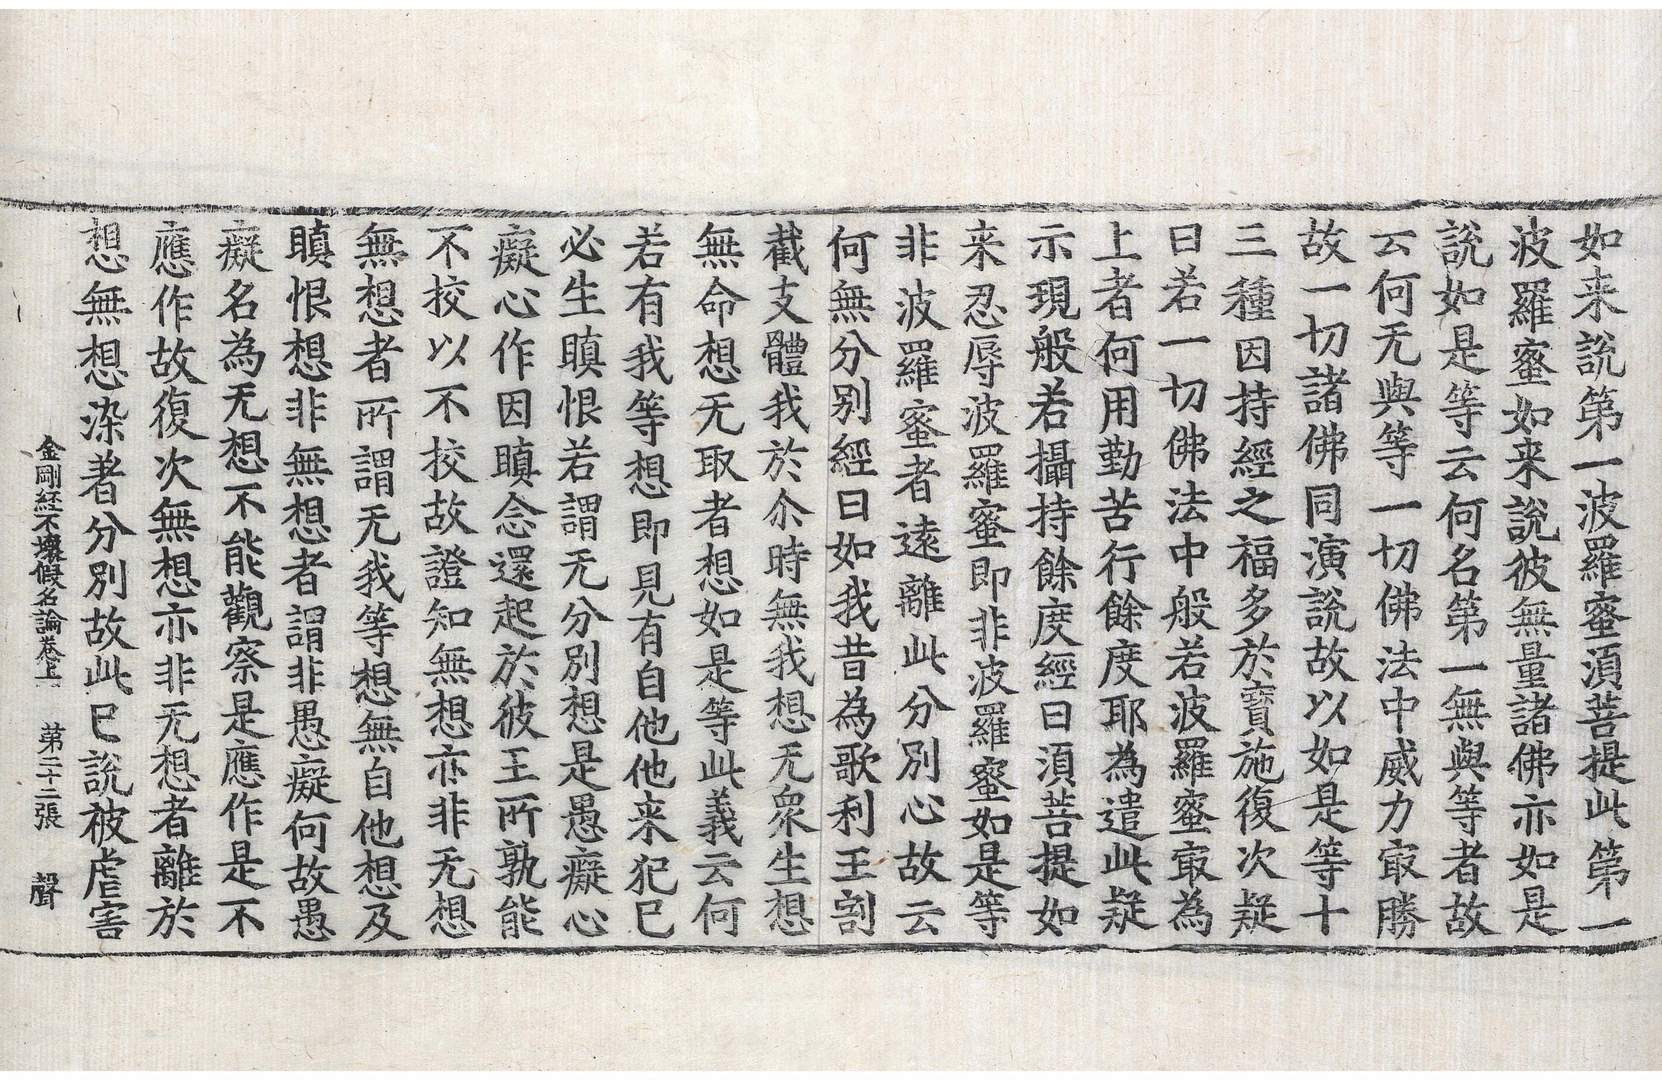 如来說第一波羅蜜湏菩提此第一
波羅蜜如来說彼無量諸佛亦如是
說如是等云何名第一無與等者故
云何无與等一切佛法中威力㝡勝
故一切諸佛同演說故以如是等十
三種因持經之福多於寶施復次疑
曰若一切佛法中般若波羅蜜㝡為
上者何用勤苦行餘度耶為遣此疑
示現般若攝持餘度經曰湏菩提如
来忍辱波羅蜜即非波羅蜜如是等
非波羅蜜者遠離此分別心故云
何無分別經曰如我昔為歌利王割
截支體我於尒時無我想无衆生想
無命想无取者想如是等此義云何
若有我等想即見有自他他来犯已
必生瞋恨若謂无分別想是愚癡心
癡心作因瞋念還起於彼王所孰能
不挍以不挍故證知無想亦非无想
無想者所謂无我等想無自他想及
瞋恨想非無想者謂非愚癡何故愚
癡名為无想不能觀察是應作是不
應作故復次無想亦非无想者離於
想無想染著分別故此已說被虐害
金剛経不壞假名論卷上 第二十二張 聲